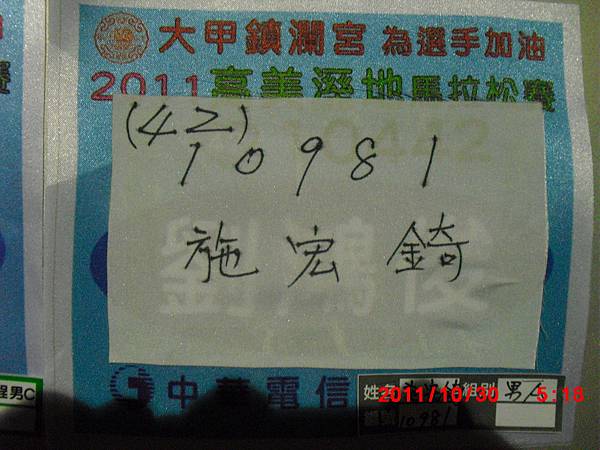 大甲鎮瀾宮 為選手加油
2011高美溼地馬拉松賽
10442
(42)
10981
施宏錡
劉鴻俊
中華電信
姓名 組別 男A
10981
程男C
2011/10/30 5:18